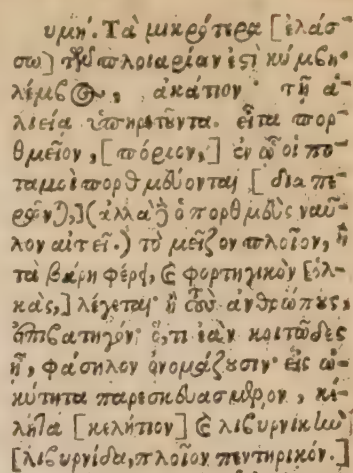 υμή. Τὰ μικρότερα [ἐλάσ-
σω] τῶν πλοιαρίων ἐςὶ κύμβη·
λέμβος, ἀκάτιον· τῇ ἁ-
λιεία ὑπηρετοῦντα. εἶτα πορ-
θμεῖον, [πόριον,] ἐν ᾧ οἱ πο-
ταμοὶ πορθμεύονται [δια πε-
ρῶν),] (ἀλλὰ ὁ πορθμεὺς ναῦ-
λον αἰτεῖ.) τὸ μεῖζον πλοῖον, ἢ
τὰ βάρη φέρει, καὶ φορτηγικὸν [ὁλ-
κάς,] λέγεται· ἢ τοὺς ἀνθρώπους,
ἐπιβατηγόν· ὅ,τι ἐὰν κριτῶδες
ᾖ, φάσηλον ὀνομάζουσιν· εἰς ὠ-
κύτητα παρεσκευασμένον, κέ-
λητα [κελήτιον] καὶ λιβυρνικὴν
[λιβυρνίδα, πλοῖον πεντηρικόν.]